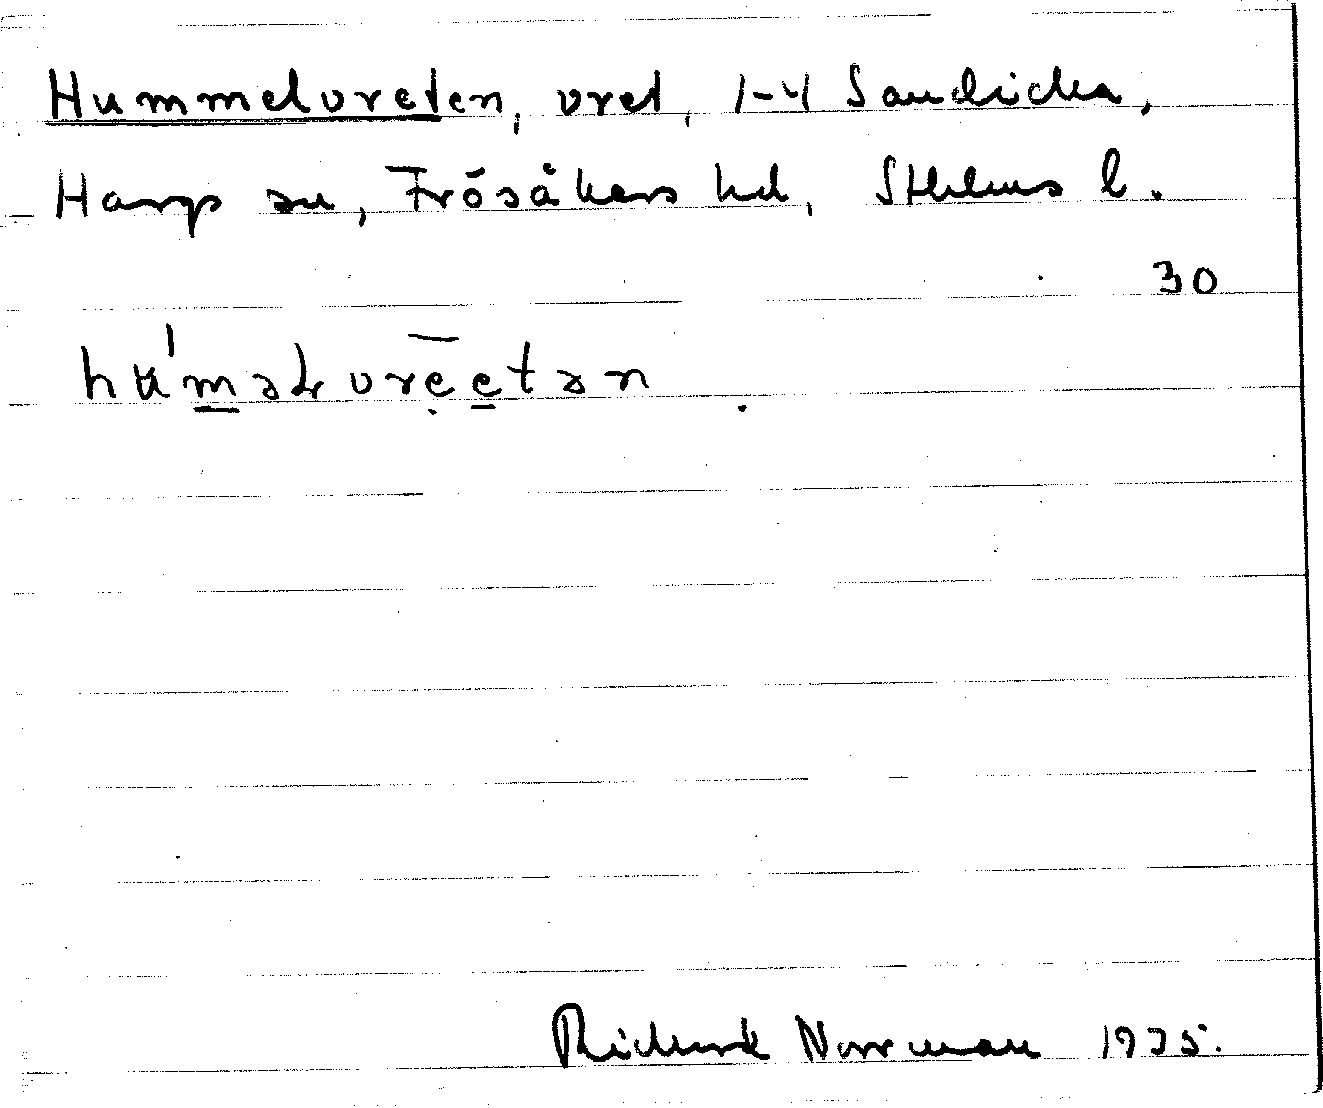 Hummelvreten, vret, 1-4 Sandika,
Harg sn, Frösåkers hd, Sthlms l.
30
hu'məlvreetən
Rickard Norrman 1935.